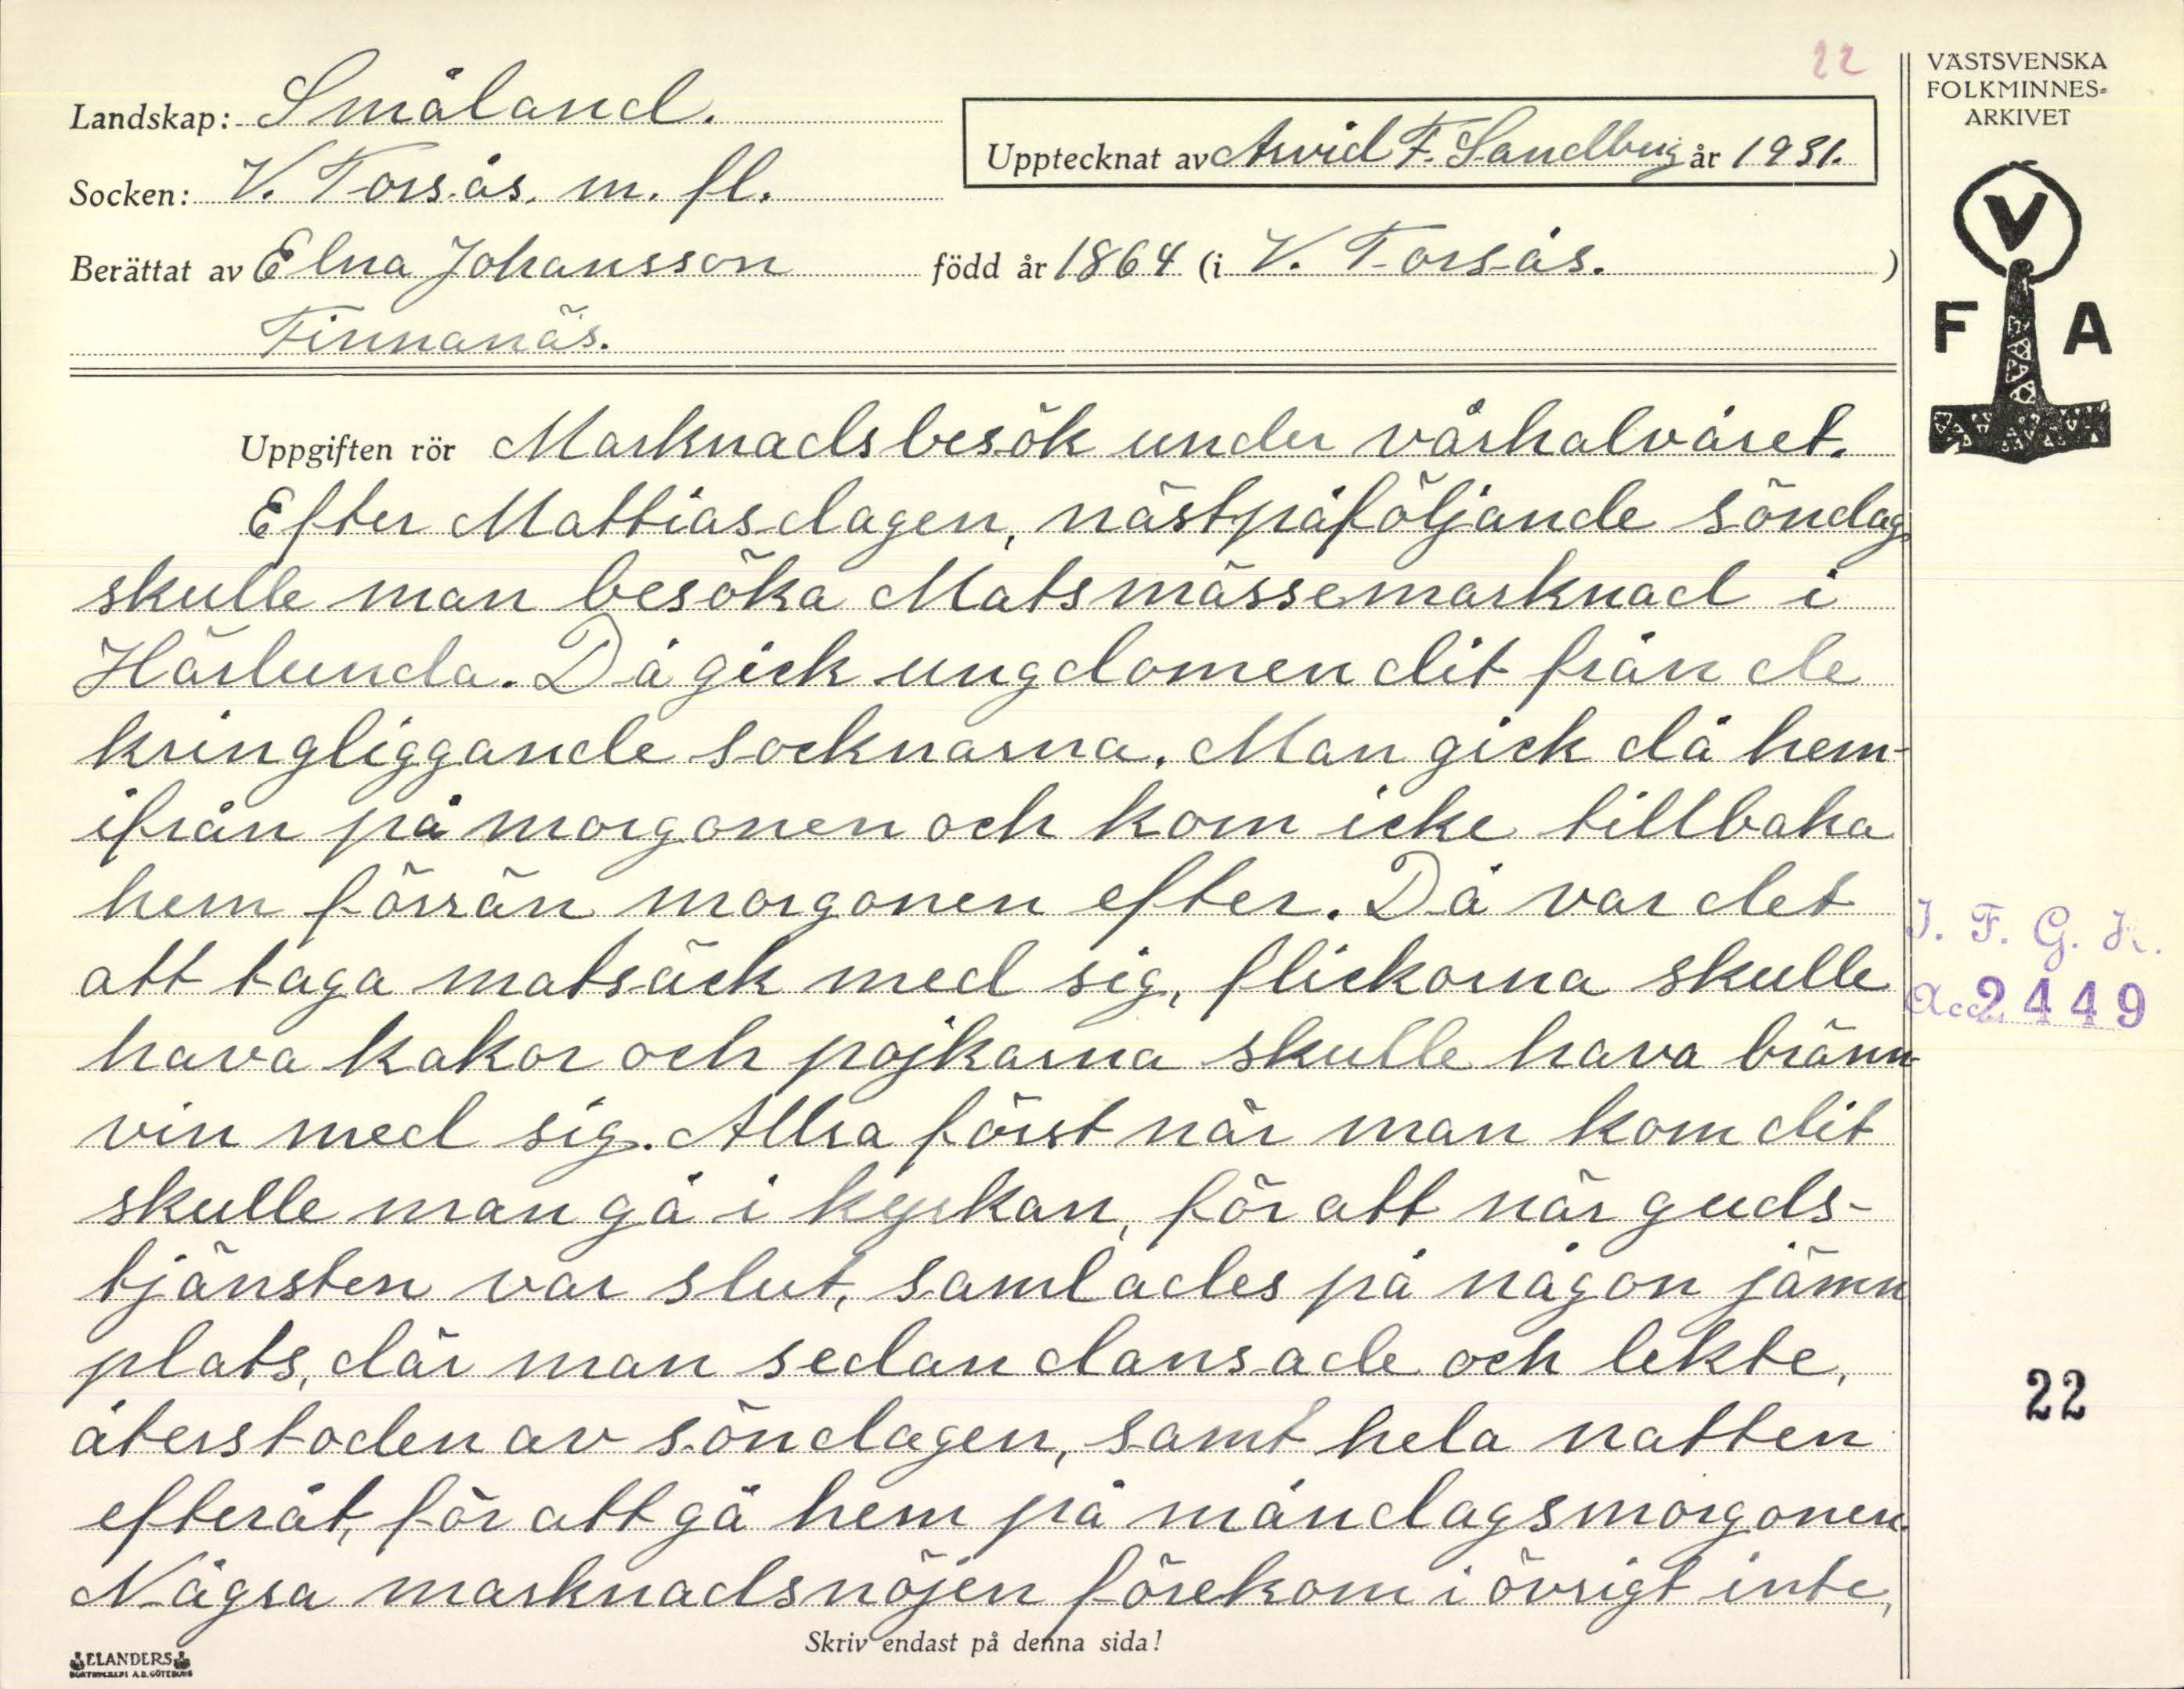 22
VÄSTSVENSKA
FOLKMINNES-
ARKIVET
Landskap: Småland.
Upptecknat av Arvid F. Sandberg år 1931.
Socken: V. Torsås. m. fl.
Berättat av Elna Johansson född år 1864 (i V. Torsås.)
Finnanäs.
V
F A
Uppgiften rör Marknadsbesök under vårhalvåret.
Efter Mattiasdagen, nästpåföljande söndag
skulle man besöka Matsmässemarknad i
Härlunda. Då gick ungdomen dit från de
kringliggande socknarna. Man gick då hem-
ifrån på morgonen och kom icke tillbaka
hem förrän morgonen efter. Då var det
att taga matsäck med sig, flickorna skulle
hava kakor och pojkarna skulle hava bränn-
vin med sig. Allra först när man kom dit
skulle man gå i kyrkan, för att när guds-
tjänsten var slut, samlades på någon jämn
plats, där man sedan dansade och lekte,
återstoden av söndagen, samt hela natten
efteråt, för att gå hem på måndagsmorgonen.
Några marknadsnöjen förekom i övrigt inte,
I. F. G. H.
Acc. 2449
22
Skriv endast på denna sida!
ELANDERS
BOKTRYCKERI A.B. GÖTEBORG